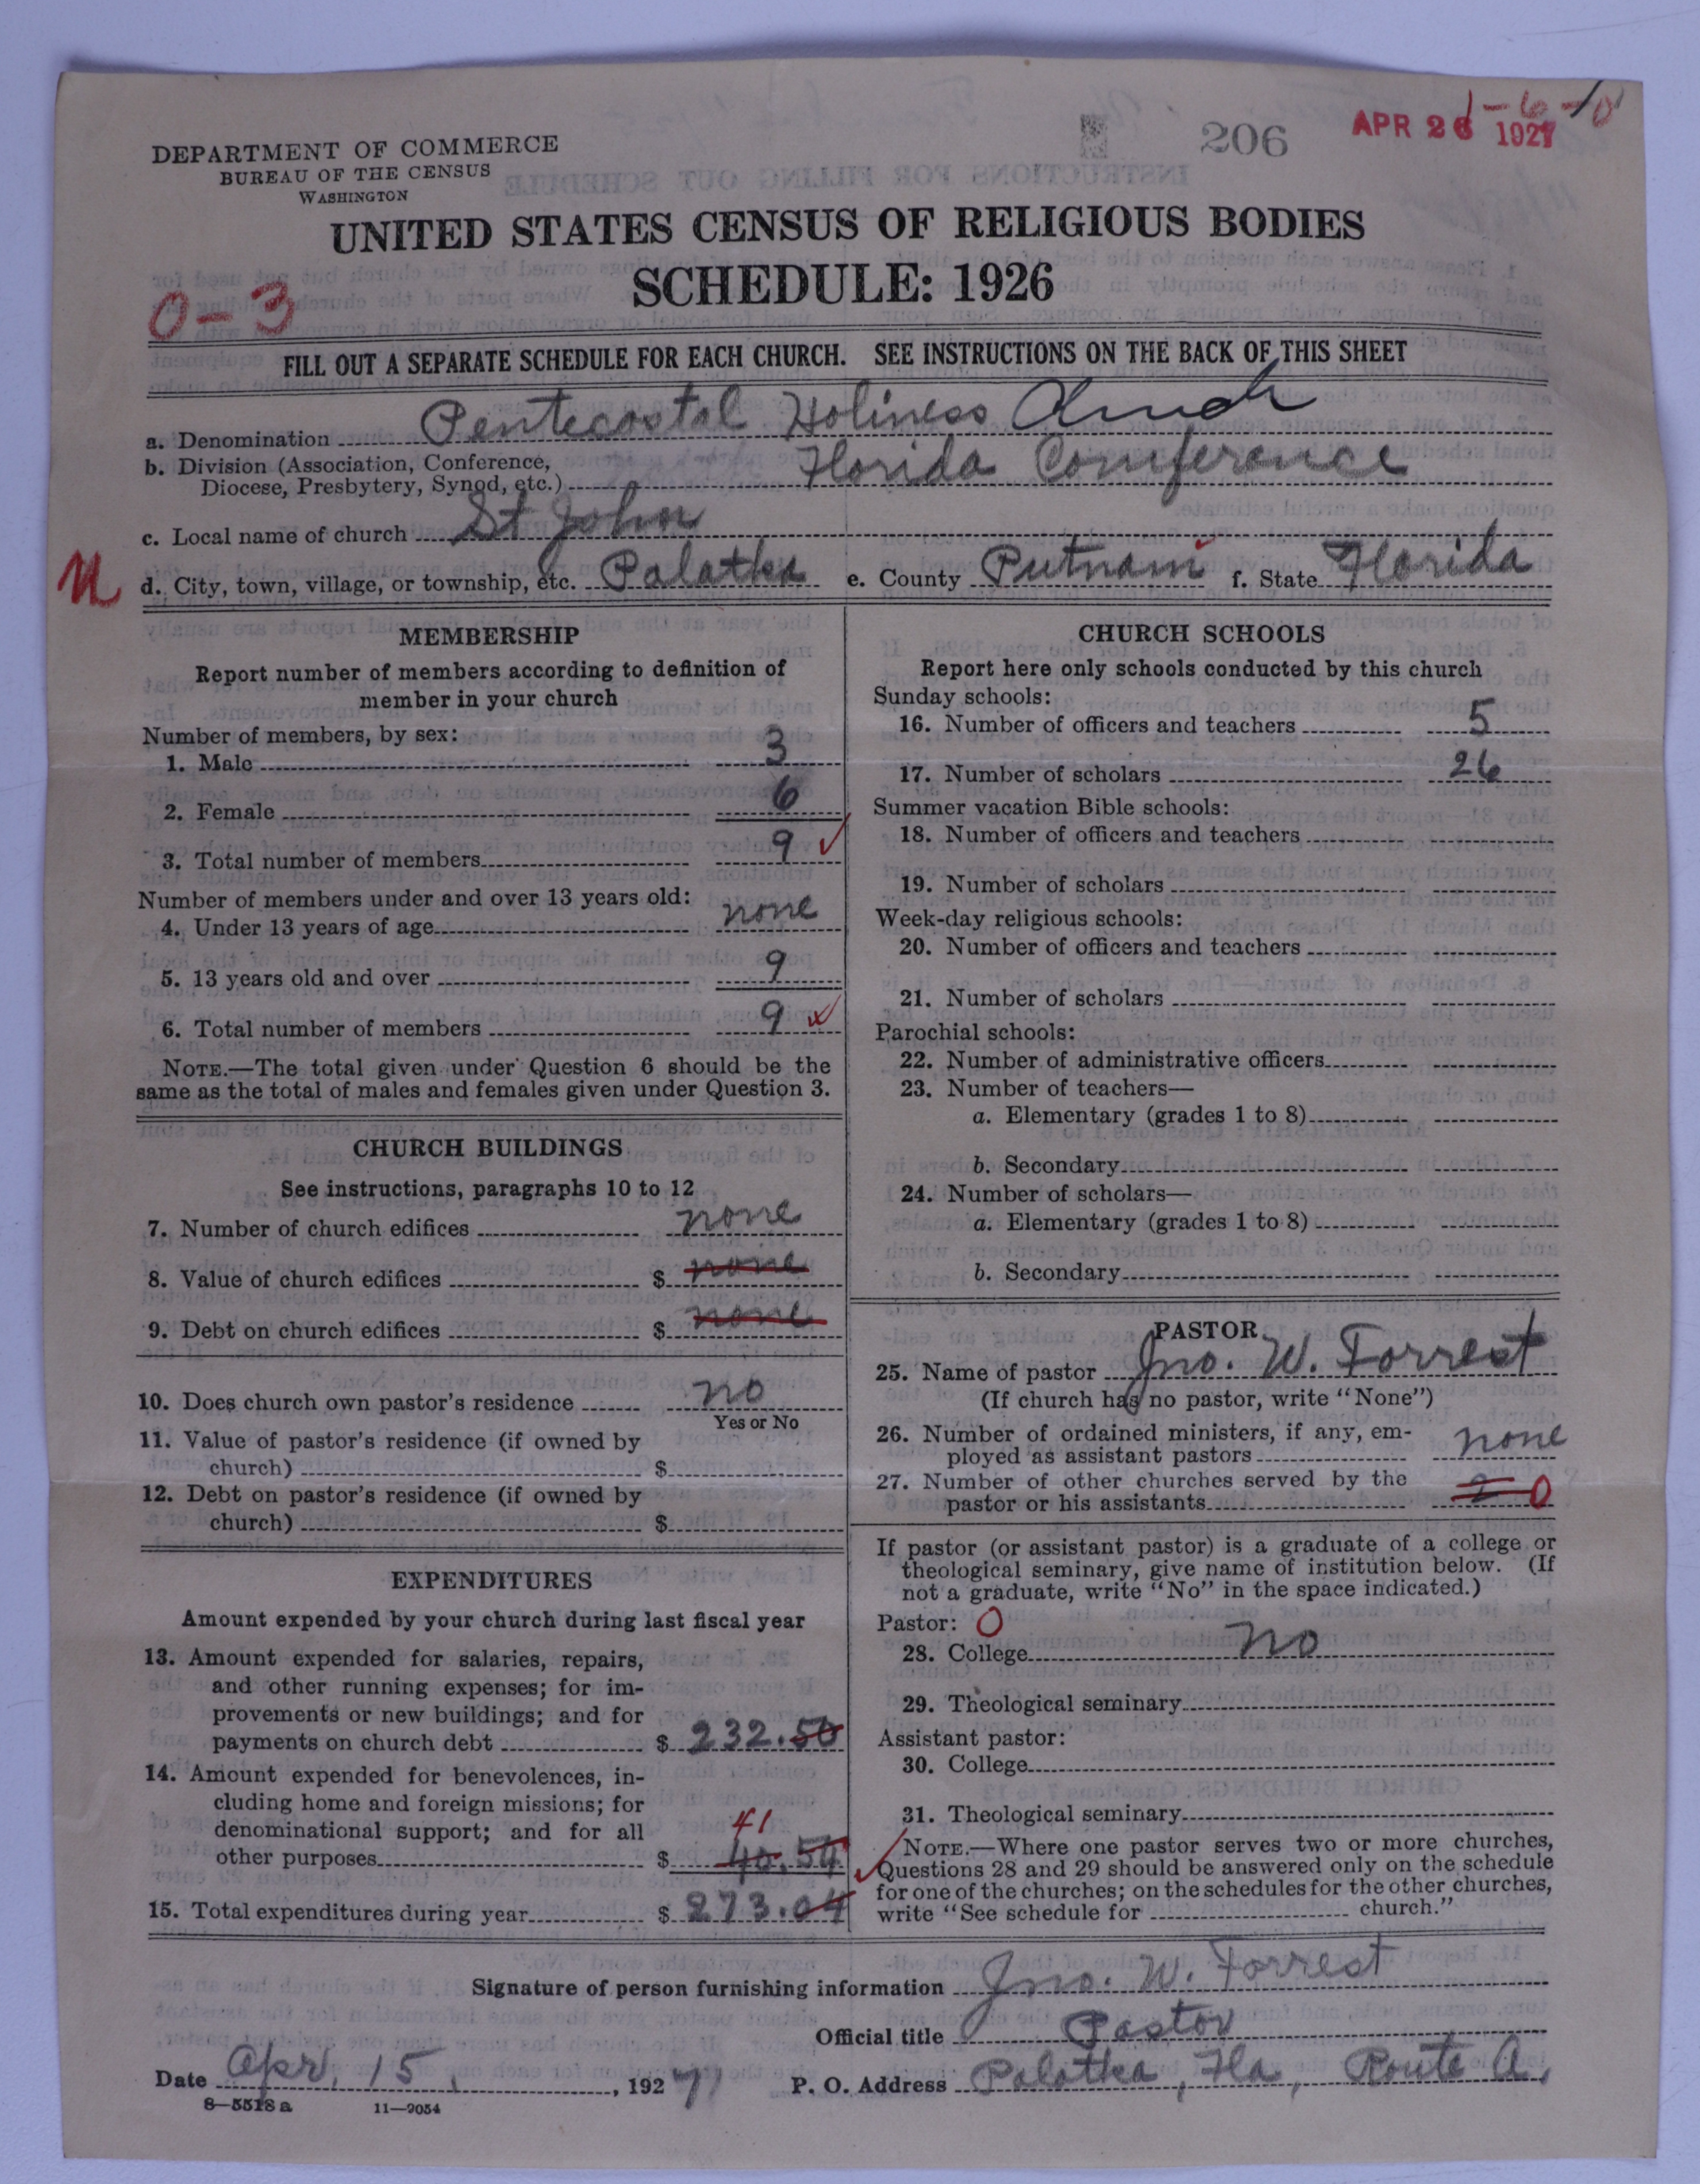 1-6-10
206
APR 26 1927
DEPARTMENT OF COMMERCE
BUREAU OF THE CENSUS
WASHINGTON
UNITED STATES CENSUS OF RELIGIOUS BODIES
SCHEDULE: 1926
0-3
FILL OUT A SEPARATE SCHEDULE FOR EACH CHURCH. SEE INSTRUCTIONS ON THE BACK OF THIS SHEET
a. Denomination Pentecostal Holiness Church
b. Division (Association, Conference, Diocese, Presbytery, Synod, etc.) Florida Conference
c. Local name of church St John
d. City, town, village, or township, etc. Palatka e. County Putnam f. State Florida
MEMBERSHIP
Report number of members according to definition of
member in your church
Number of members, by sex:
1. Male 3
2. Female 6
3. Total number of members 9
Number of members under and over 13 years old:
4. Under 13 years of age none
5. 13 years old and over 9
6. Total number of members 9
NOTE.—The total given under Question 6 should be the
same as the total of males and females given under Question 3.
CHURCH BUILDINGS
See instructions, paragraphs 10 to 12
7. Number of church edifices none
8. Value of church edifices $ none
9. Debt on church edifices $ none
10. Does church own pastor's residence no
Yes or No
11. Value of pastor's residence (if owned by
church) $
12. Debt on pastor's residence (if owned by
church) $
EXPENDITURES
Amount expended by your church during last fiscal year
13. Amount expended for salaries, repairs,
and other running expenses; for im-
provements or new buildings; and for
payments on church debt $ 232.50
14. Amount expended for benevolences, in-
cluding home and foreign missions; for
denominational support; and for all
41
other purposes $ 40.54
15. Total expenditures during year $ 273.04
CHURCH SCHOOLS
Report here only schools conducted by this church
Sunday schools:
16. Number of officers and teachers 5
17. Number of scholars 26
Summer vacation Bible schools:
18. Number of officers and teachers
19. Number of scholars
Week-day religious schools:
20. Number of officers and teachers
21. Number of scholars
Parochial schools:
22. Number of administrative officers
23. Number of teachers—
a. Elementary (grades 1 to 8)
b. Secondary
24. Number of scholars—
a. Elementary (grades 1 to 8)
b. Secondary
PASTOR
25. Name of pastor Jno. W. Forrest
(If church has no pastor, write "None")
26. Number of ordained ministers, if any, em-
ployed as assistant pastors none
27. Number of other churches served by the
pastor or his assistants 2 0
If pastor (or assistant pastor) is a graduate of a college or
theological seminary, give name of institution below. (If
not a graduate, write "No" in the space indicated.)
Pastor: 0
28. College no
29. Theological seminary
Assistant pastor:
30. College
31. Theological seminary
NOTE.—Where one pastor serves two or more churches,
Questions 28 and 29 should be answered only on the schedule
for one of the churches; on the schedules for the other churches,
write "See schedule for church."
Signature of person furnishing information Jno. W. Forrest
Official title Pastor
Date Apr. 15, 1927 P. O. Address Palatka, Fla, Route A.
8—5518 a 11—9054